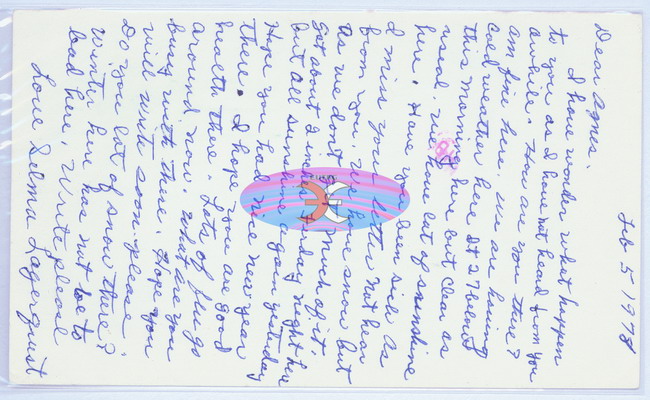 Feb 5 1978
Dear Agnes.
I have wonder what happen
to you as I have not heard from you
awhile. How are you there?
am fine here. We are having
cold weather here It 27 below
this morning here but clear as
usual. We have lot of sunshine
here. Have you been sick as
I miss your letter not hear
from you. We have snow but
as we don't much of it.
Got about 2 inches Friday night here
but all sunshine again yesterday
Hope you had nice new year
there. I hope you are good
health there. Lots of flu go
around now. What are you
busy with there. Hope you
will write soon please.
Do you lot of snow there?
Winter here has not be to
bad here. Write please
Love Selma Lagerquist